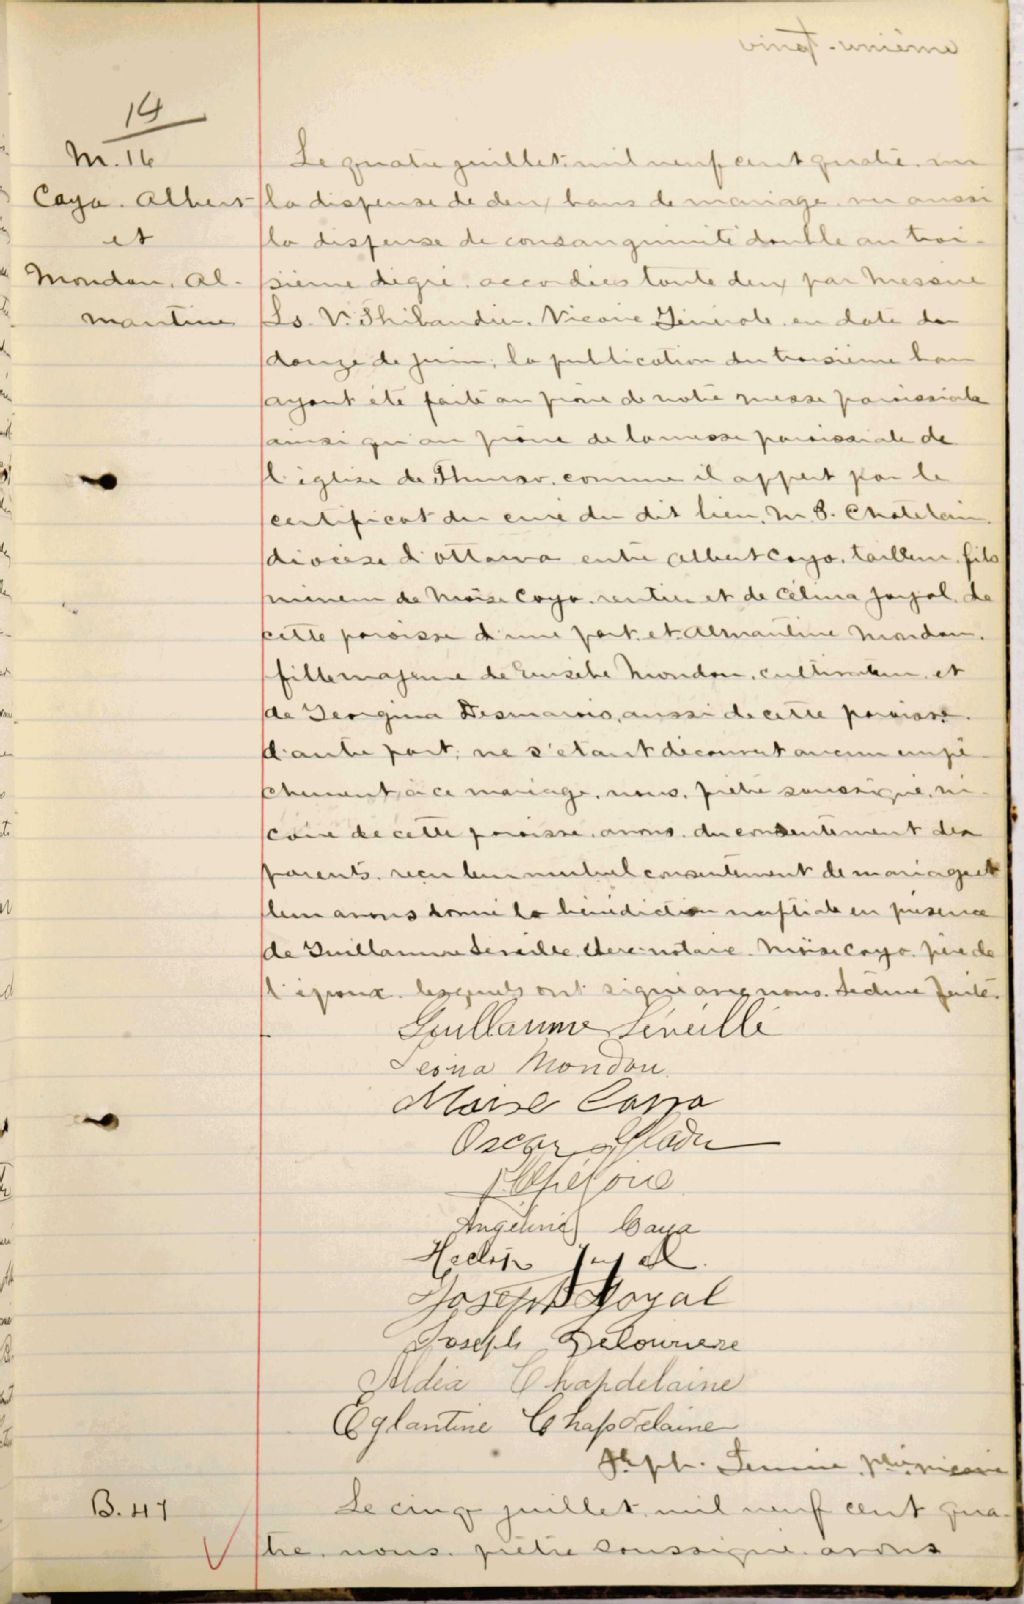 vingt-unième
14
M. 16
Caya. Albert
et
Mondou. Al-
mantine
Le quatre juillet mil neuf cent quatre. vu
la dispense de deux bans de mariage. vu aussi
la dispense de consanguinité double au troi-
sième degré. accordées toute deux par Messire
Ls. V. Thibaudier. Vicaire Général en date du
douze de juin; la publication du troisième ban
ayant été faite au prône de notre messe paroissiale
ainsi qu'au prône de la messe paroissiale de
l'église de Thurso. comme il appert par le
certificat du curé du dit lieu. M. S. Chatelain.
diocèse d'Ottawa entre Albert Caya. tailleur. fils
mineur de Moïse Caya. rentier et de Célina Joyal. de
cette paroisse d'une part. et. Almantine Mondou.
fille majeure de Eusèbe Mondou. cultivateur. et
de Georgina Desmarais. aussi de cette paroisse.
d'autre part; ne s'étant découvert aucun empê-
chement à ce mariage. nous. prêtre soussigné. vi-
caire de cette paroisse. avons. du consentement des
parents. reçu leur mutuel consentement de mariage et
leur avons donné la bénédiction nuptiale en présence
de Guillaume Léveillé. notaire. Moïse Caya. père de
l'époux. lesquels ont signé avec nous. Lecture faite.
Guillaume Léveillé
Mondou.
Moïse Caya
Oscar
Angelina Caya
Joyal.
Joseph Joyal
Joseph
Aldéa Chapdelaine
Eglantine Chapdelaine
ptre. vicaire
B. 47
Le cinq juillet. mil neuf cent qua-
tre. nous. prêtre soussigné. avons